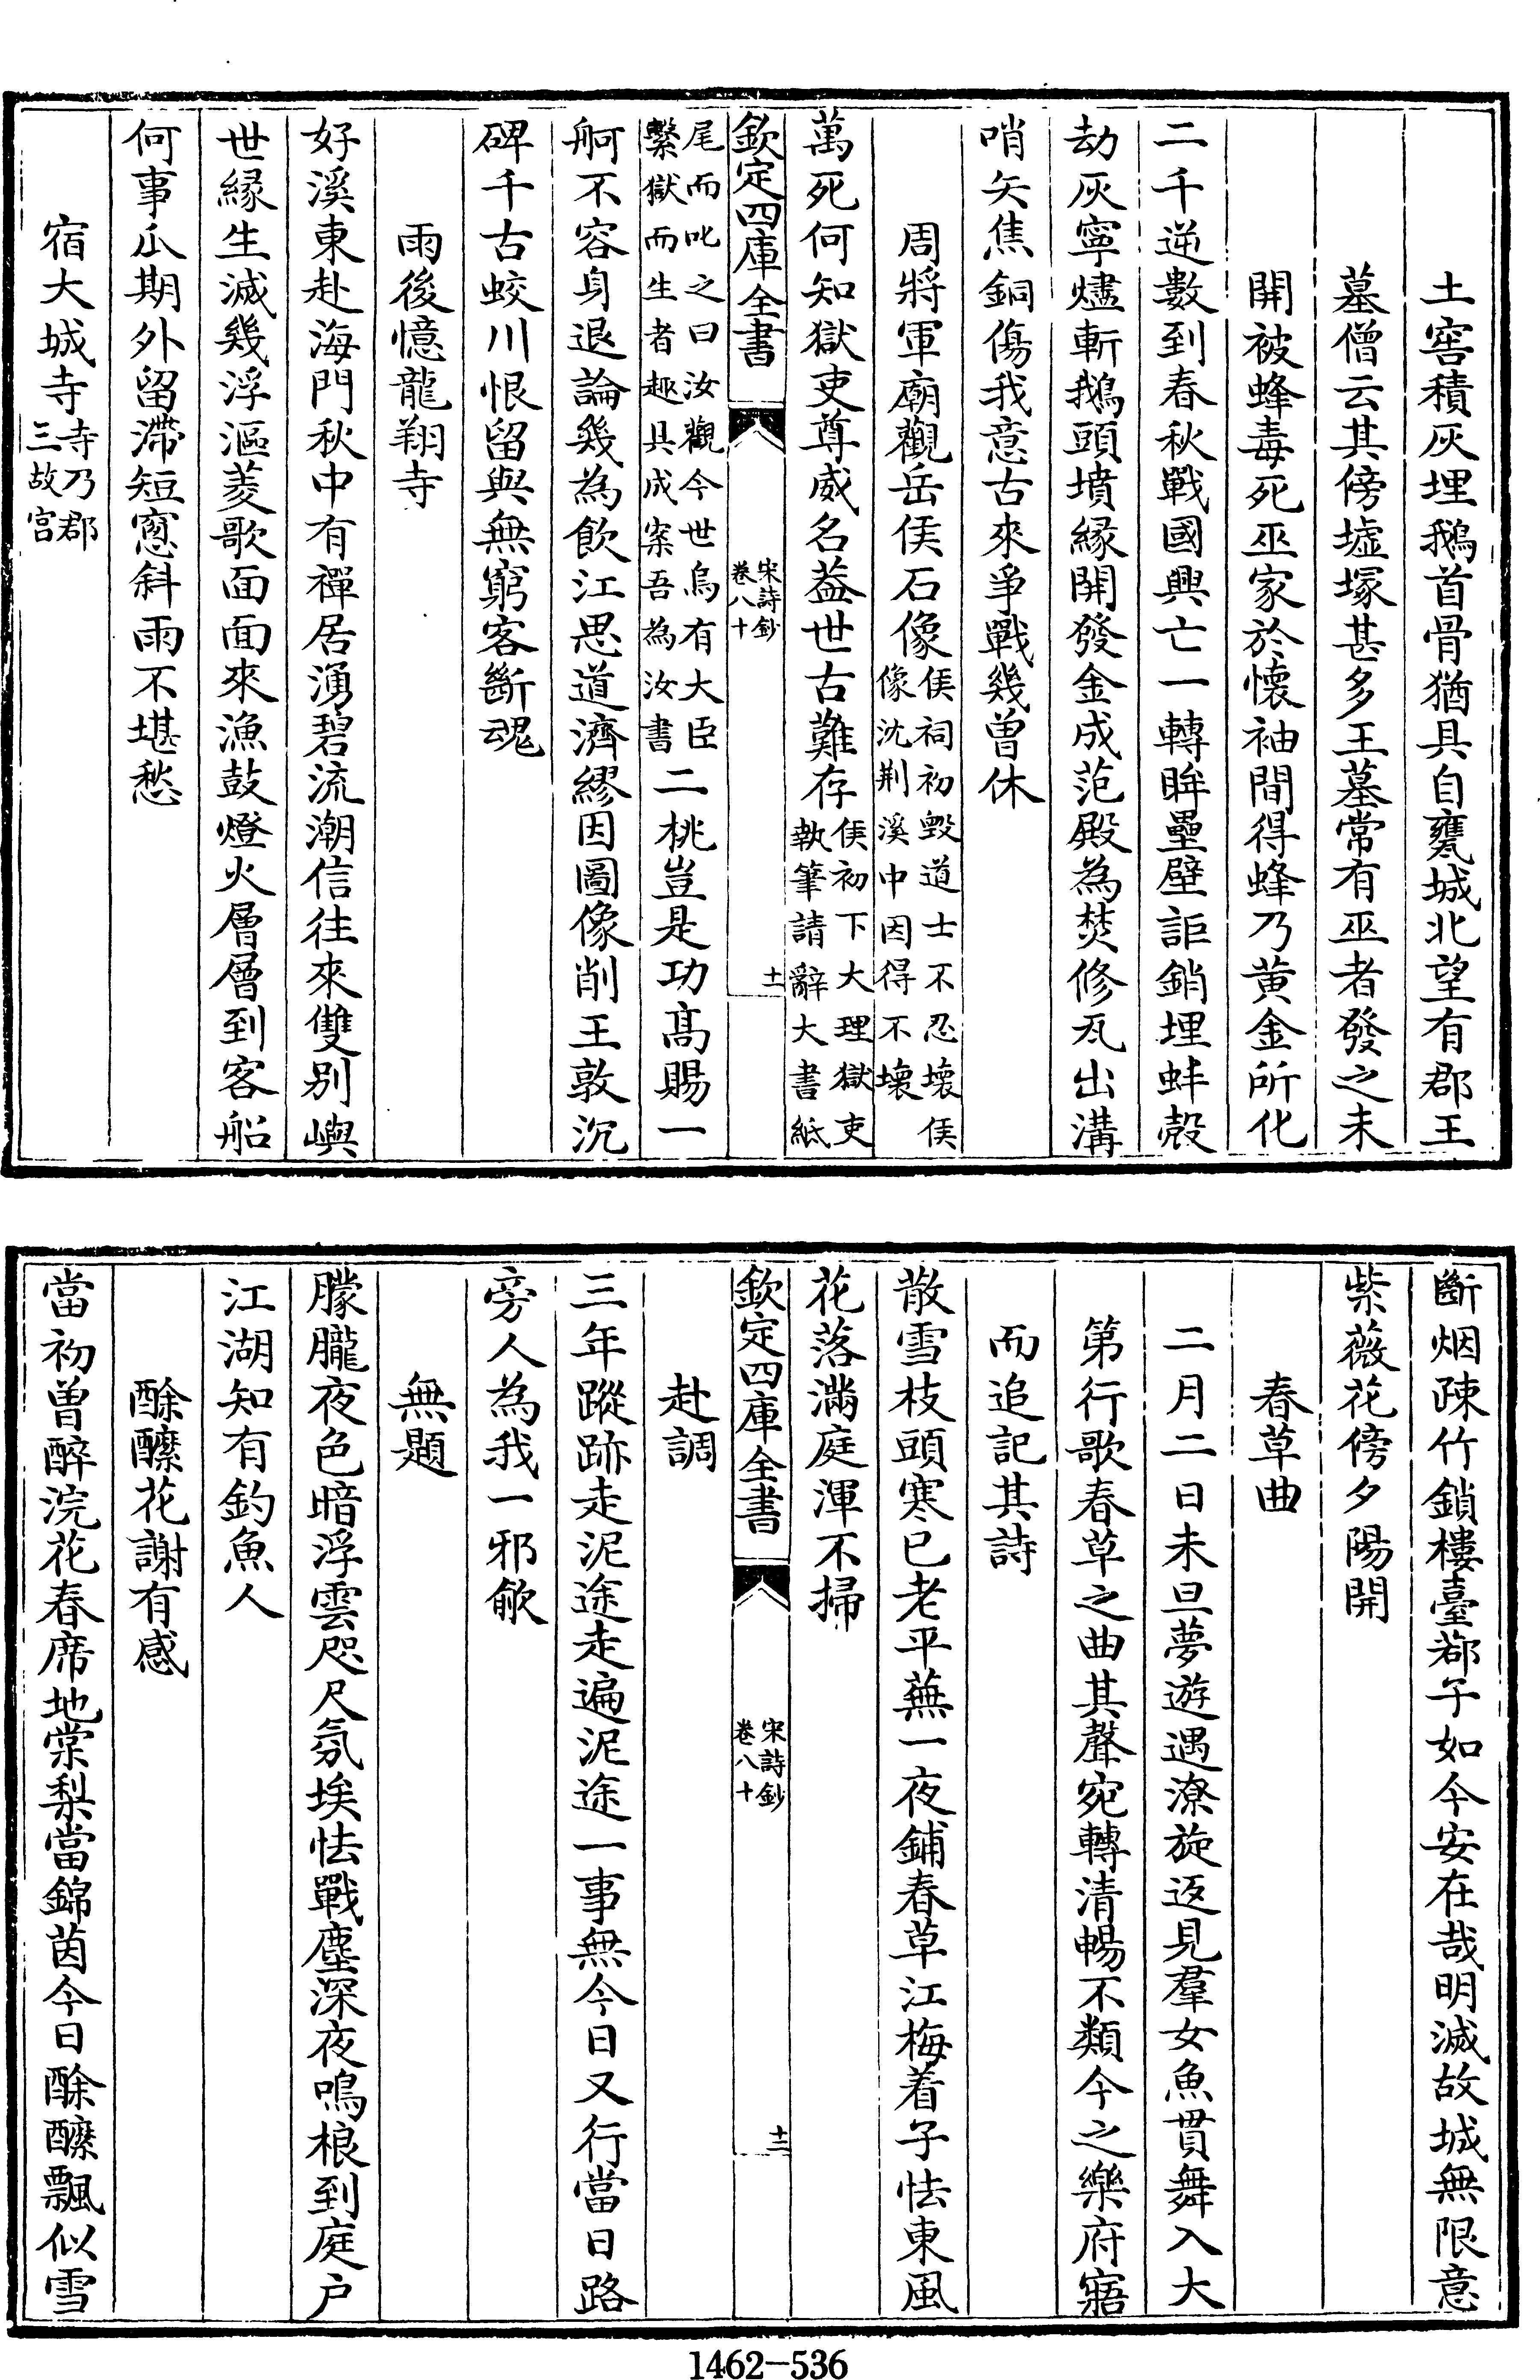 土窖積灰埋鵝首骨猶具自甕城北望有郡王
墓僧云其傍墟塚甚多王墓常有巫者發之未
開被蜂毒死巫家於懷袖間得蜂乃黄金所化
二千逆數到春秋戰國興亡一轉眸壘壁詎銷埋蚌殻
劫灰寧燼斬鵝頭墳緣開發金成范殿為焚修瓦出溝
哨矢焦銅傷我意古來爭戰幾曾休
周將軍廟觀岳侯石像侯祠初毀道士不忍壞侯
像沈荆溪中因得不壞
萬死何知獄吏尊威名葢世古難存侯初下大理獄吏
執筆請辭大書紙
欽定四庫全書
宋詩鈔
卷八十
十一
尾而叱之曰汝觀今世烏有大臣
繫獄而生者趣具成案吾為汝書二桃豈是功髙賜一
舸不容身退論幾為飲江思道濟繆因圖像削王敦沉
碑千古蛟川恨留與無窮客斷魂
雨後憶龍翔寺
好溪東赴海門秋中有禪居湧碧流潮信往來雙别嶼
世緣生滅幾浮漚菱歌面面來漁鼓燈火層層到客船
何事瓜期外留滯短窓斜雨不堪愁
宿大城寺寺乃郡
三故宫
斷烟疎竹鎖樓臺郄子如今安在哉明滅故城無限意
紫薇花傍夕陽開
春草曲
二月二日未旦夢遊遇潦旋返見羣女魚貫舞入大
第行歌春草之曲其聲宛轉清暢不類今之樂府寤
而追記其詩
散雪枝頭寒已老平蕪一夜鋪春草江梅着子怯東風
花落滿庭渾不掃
欽定四庫全書
宋詩鈔
卷八十
十二
赴調
三年蹤跡走泥途走遍泥途一事無今日又行當日路
旁人為我一邪歈
無題
朦朧夜色暗浮雲咫尺氛埃怯戰塵深夜鳴桹到庭户
江湖知有釣魚人
酴醾花謝有感
當初曽醉浣花春席地棠梨當錦茵今日酴醾飄似雪
1462—536